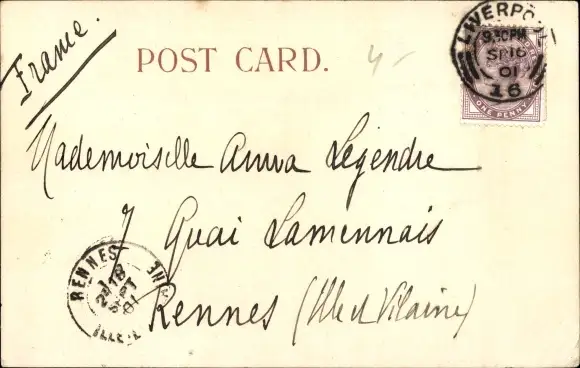 France.
POST CARD.
4-
LIVERPOOL
9.30PM
SP 16
01
16
ONE PENNY
Mademoiselle Anna Legendre
7 Quai Lamennais
Rennes (Ille et Vilaine)
RENNES
18
SEPT
01
ILLE-